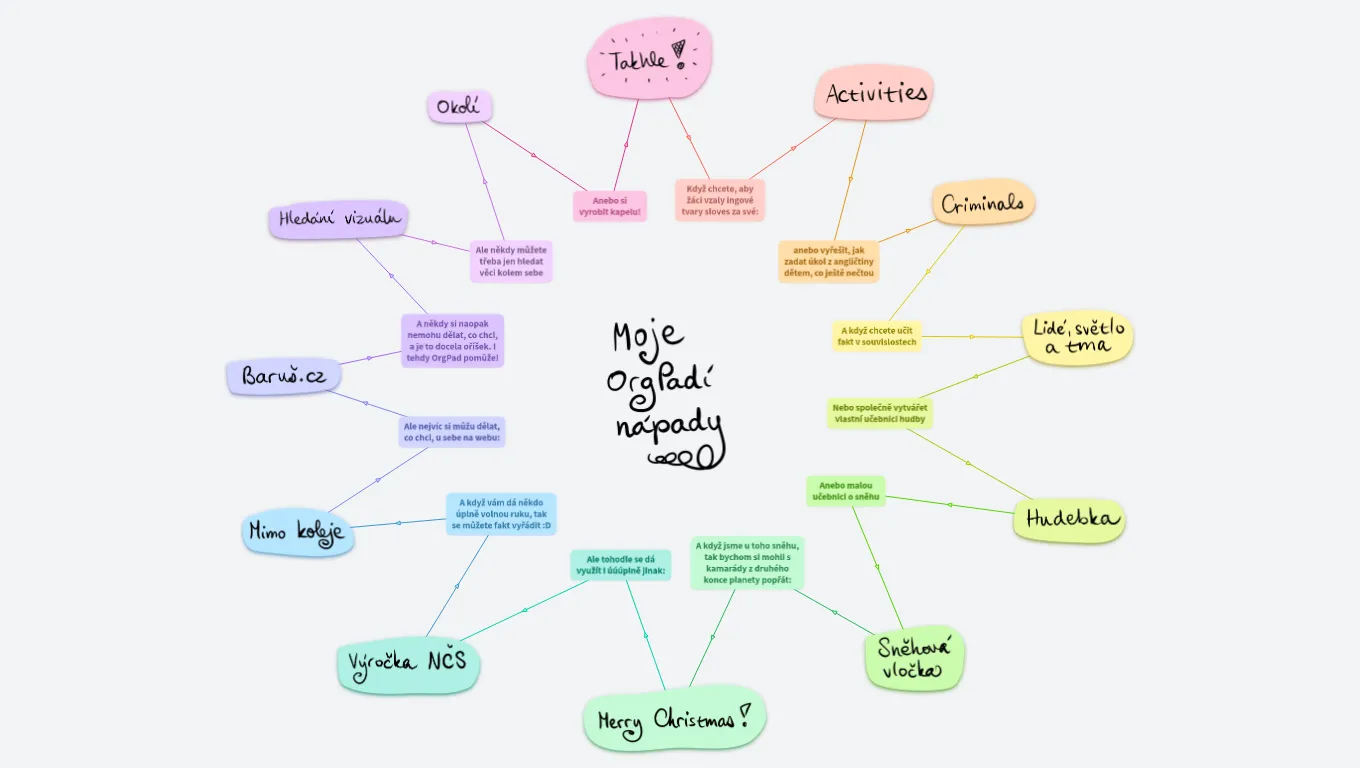 Takhle!
Activities
Okolí
Criminals
Hledání vizuálu
Anebo si
vyrobit kapelu!
Když chcete, aby
žáci vzaly ingové
tvary sloves za své:
Ale někdy můžete
třeba jen hledat
věci kolem sebe
anebo vyřešit, jak
zadat úkol z angličtiny
dětem, co ještě nečtou
A někdy si naopak
nemohu dělat, co chci,
a je to docela oříšek. I
tehdy OrgPad pomůže!
A když chcete učit
fakt v souvislostech
Lidé, světlo
a tma
Moje
OrgPadí
nápady
Baruš.cz
Ale nejvíc si můžu dělat,
co chci, u sebe na webu:
Nebo společně vytvářet
vlastní učebnici hudby
Mimo koleje
A když vám dá někdo
úplně volnou ruku, tak
se můžete fakt vyřádit :D
Anebo malou
učebnici o sněhu
Hudebka
Ale tohodle se dá
využít i úúúplně jinak:
A když jsme u toho sněhu,
tak bychom si mohli s
kamarády z druhého
konce planety popřát:
Výročka NČS
Sněhová
vločka
Merry Christmas!